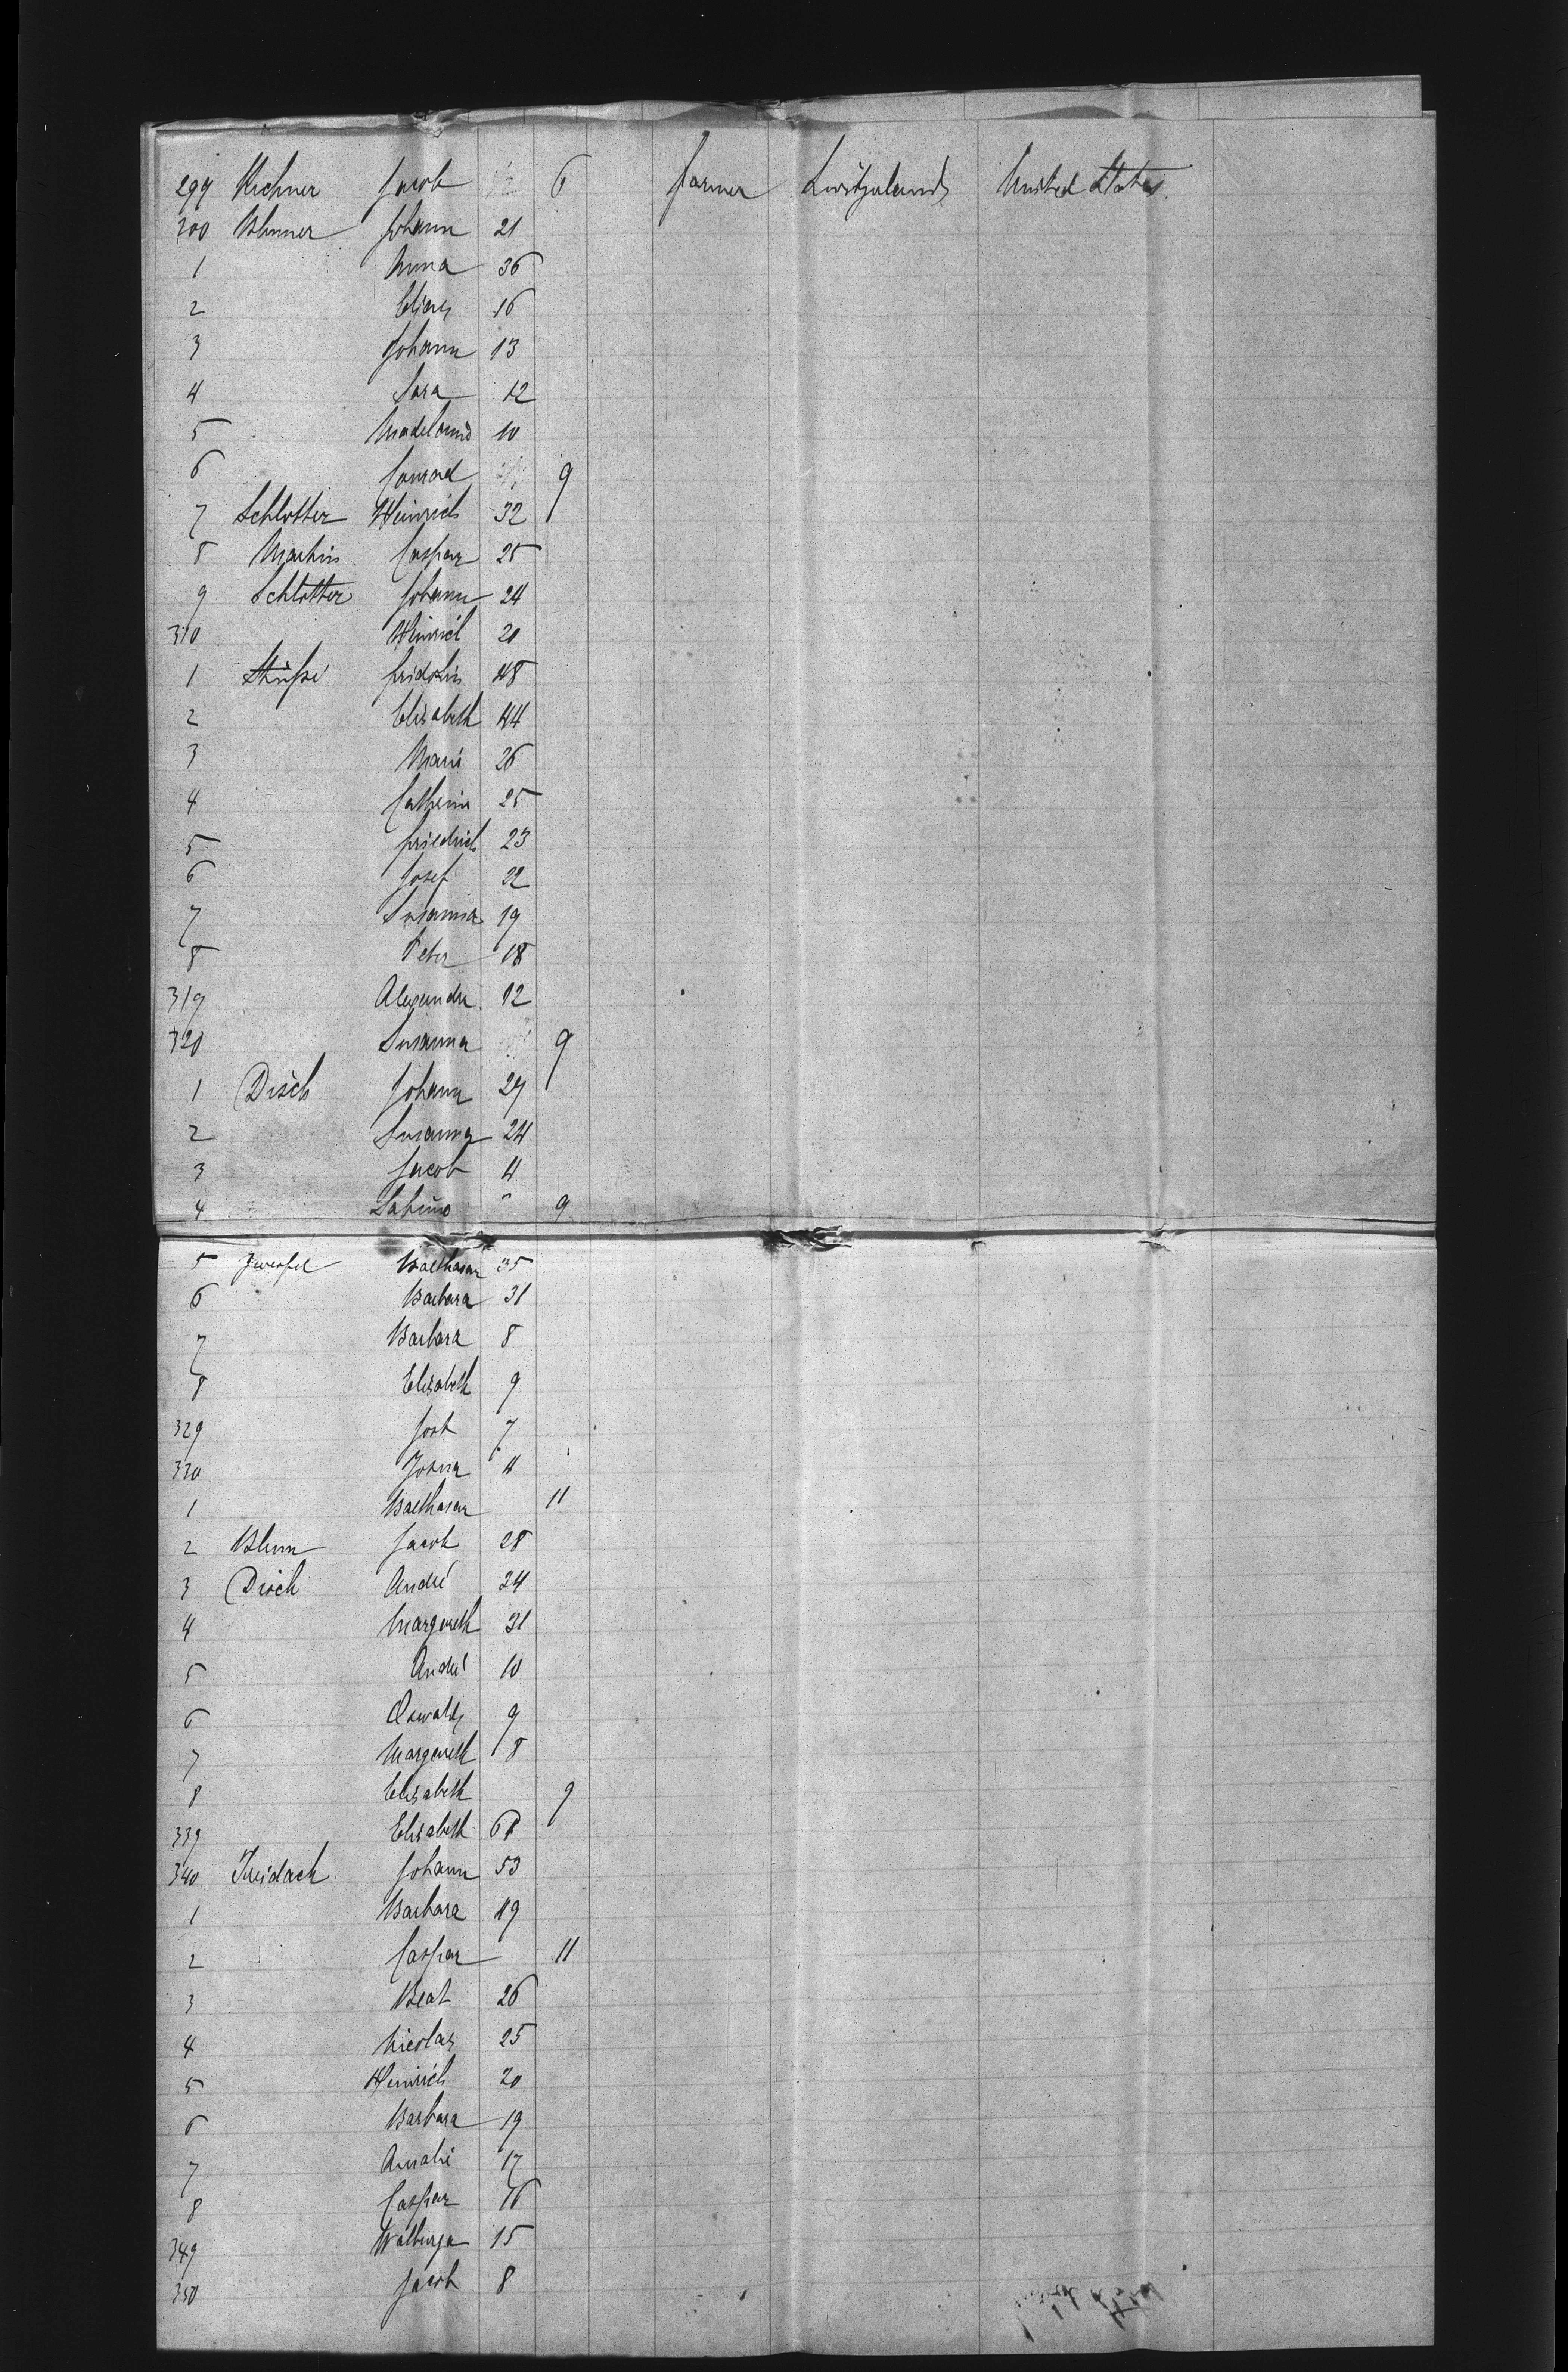 299 Kichner Jacob 6 farmer Switzelands United States
300 Blumer Johann 21
1 Anna 36
2 16
3 Johann 13
4 Sara 12
5 10
6 Conrad 9
7 Schlotter Heinrich 32
8 Martin Caspar 25
9 Schlotter Johann 24
310 Heinrich 20
1 Stüssi fridolin 48
2 Elisabeth 44
3 Marie 26
4 Catherine 25
5 friedrich 23
6 Josef 22
7 Susanna 19
8 Peter 18
319 Alexandre 12
320 Susanna 9
1 Disch Johann 27
2 Susanna 24
3 Jacob 4
4 " 9
5 Zweifel Balthasar 35
6 Barbara 31
7 Barbara 8
8 Elisabeth 9
329 Jost 7
330 4
1 Balthasar 11
2 Blum Jacob 28
3 Disch André 34
4 Margareth 31
5 André 10
6 Oswald 9
7 Margareth 8
8 Elisabeth 9
339 Elisabeth
340 Johann 53
1 Barbara 49
2 Caspar 11
3 Beat 26
4 Nicolas 25
5 Heinrich 20
6 Barbara 19
7 Amalie 17
8 Caspar 16
349 Walburga 15
350 Jacob 8